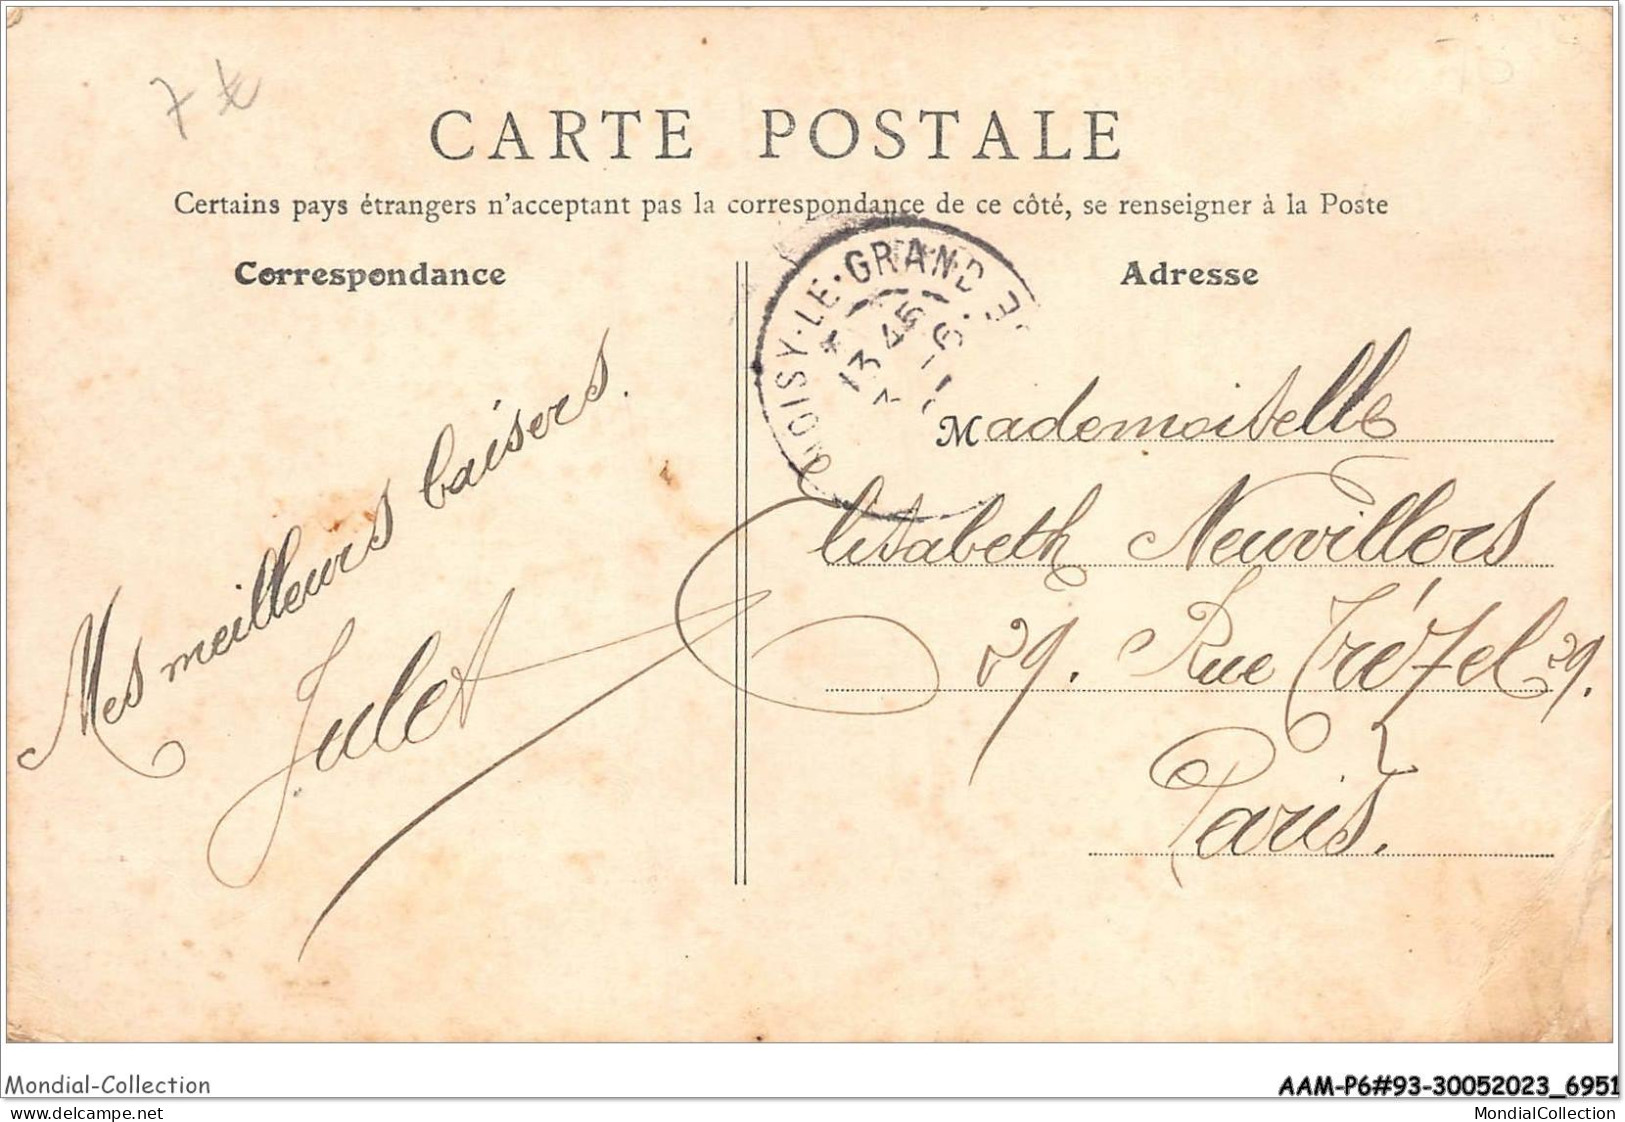 CARTE POSTALE
Certains pays étrangers n'acceptant pas la correspondance de ce côté, se renseigner à la Poste
Correspondance
Adresse
NOISY-LE-GRAND
13 45
Mes meilleurs baisers.
Mademoiselle
Elisabeth Neuvillers
29. Rue Trézel 29.
Paris.
Mondial-Collection
AAM-P6#93-30052023_6951
delcampe.net
MondialCollection